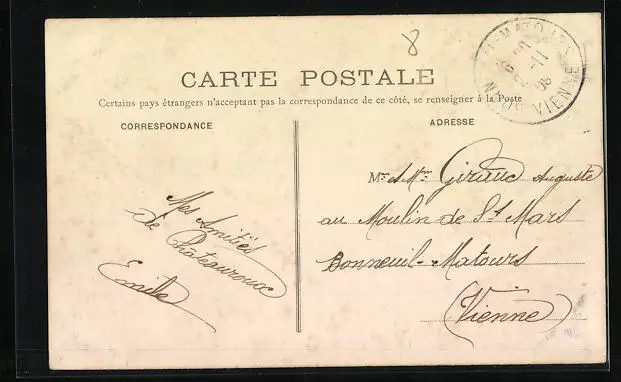 8
CARTE POSTALE
Certains pays étrangers n'acceptant pas la correspondance de ce côté, se renseigner à la Poste
CORRESPONDANCE
Mes Amitiés
de Châteauroux
Emile
ADRESSE
Mr & Mme Giraud Auguste
au Moulin de St Mars
Bonneuil-Matours
(Vienne)
VIENNE